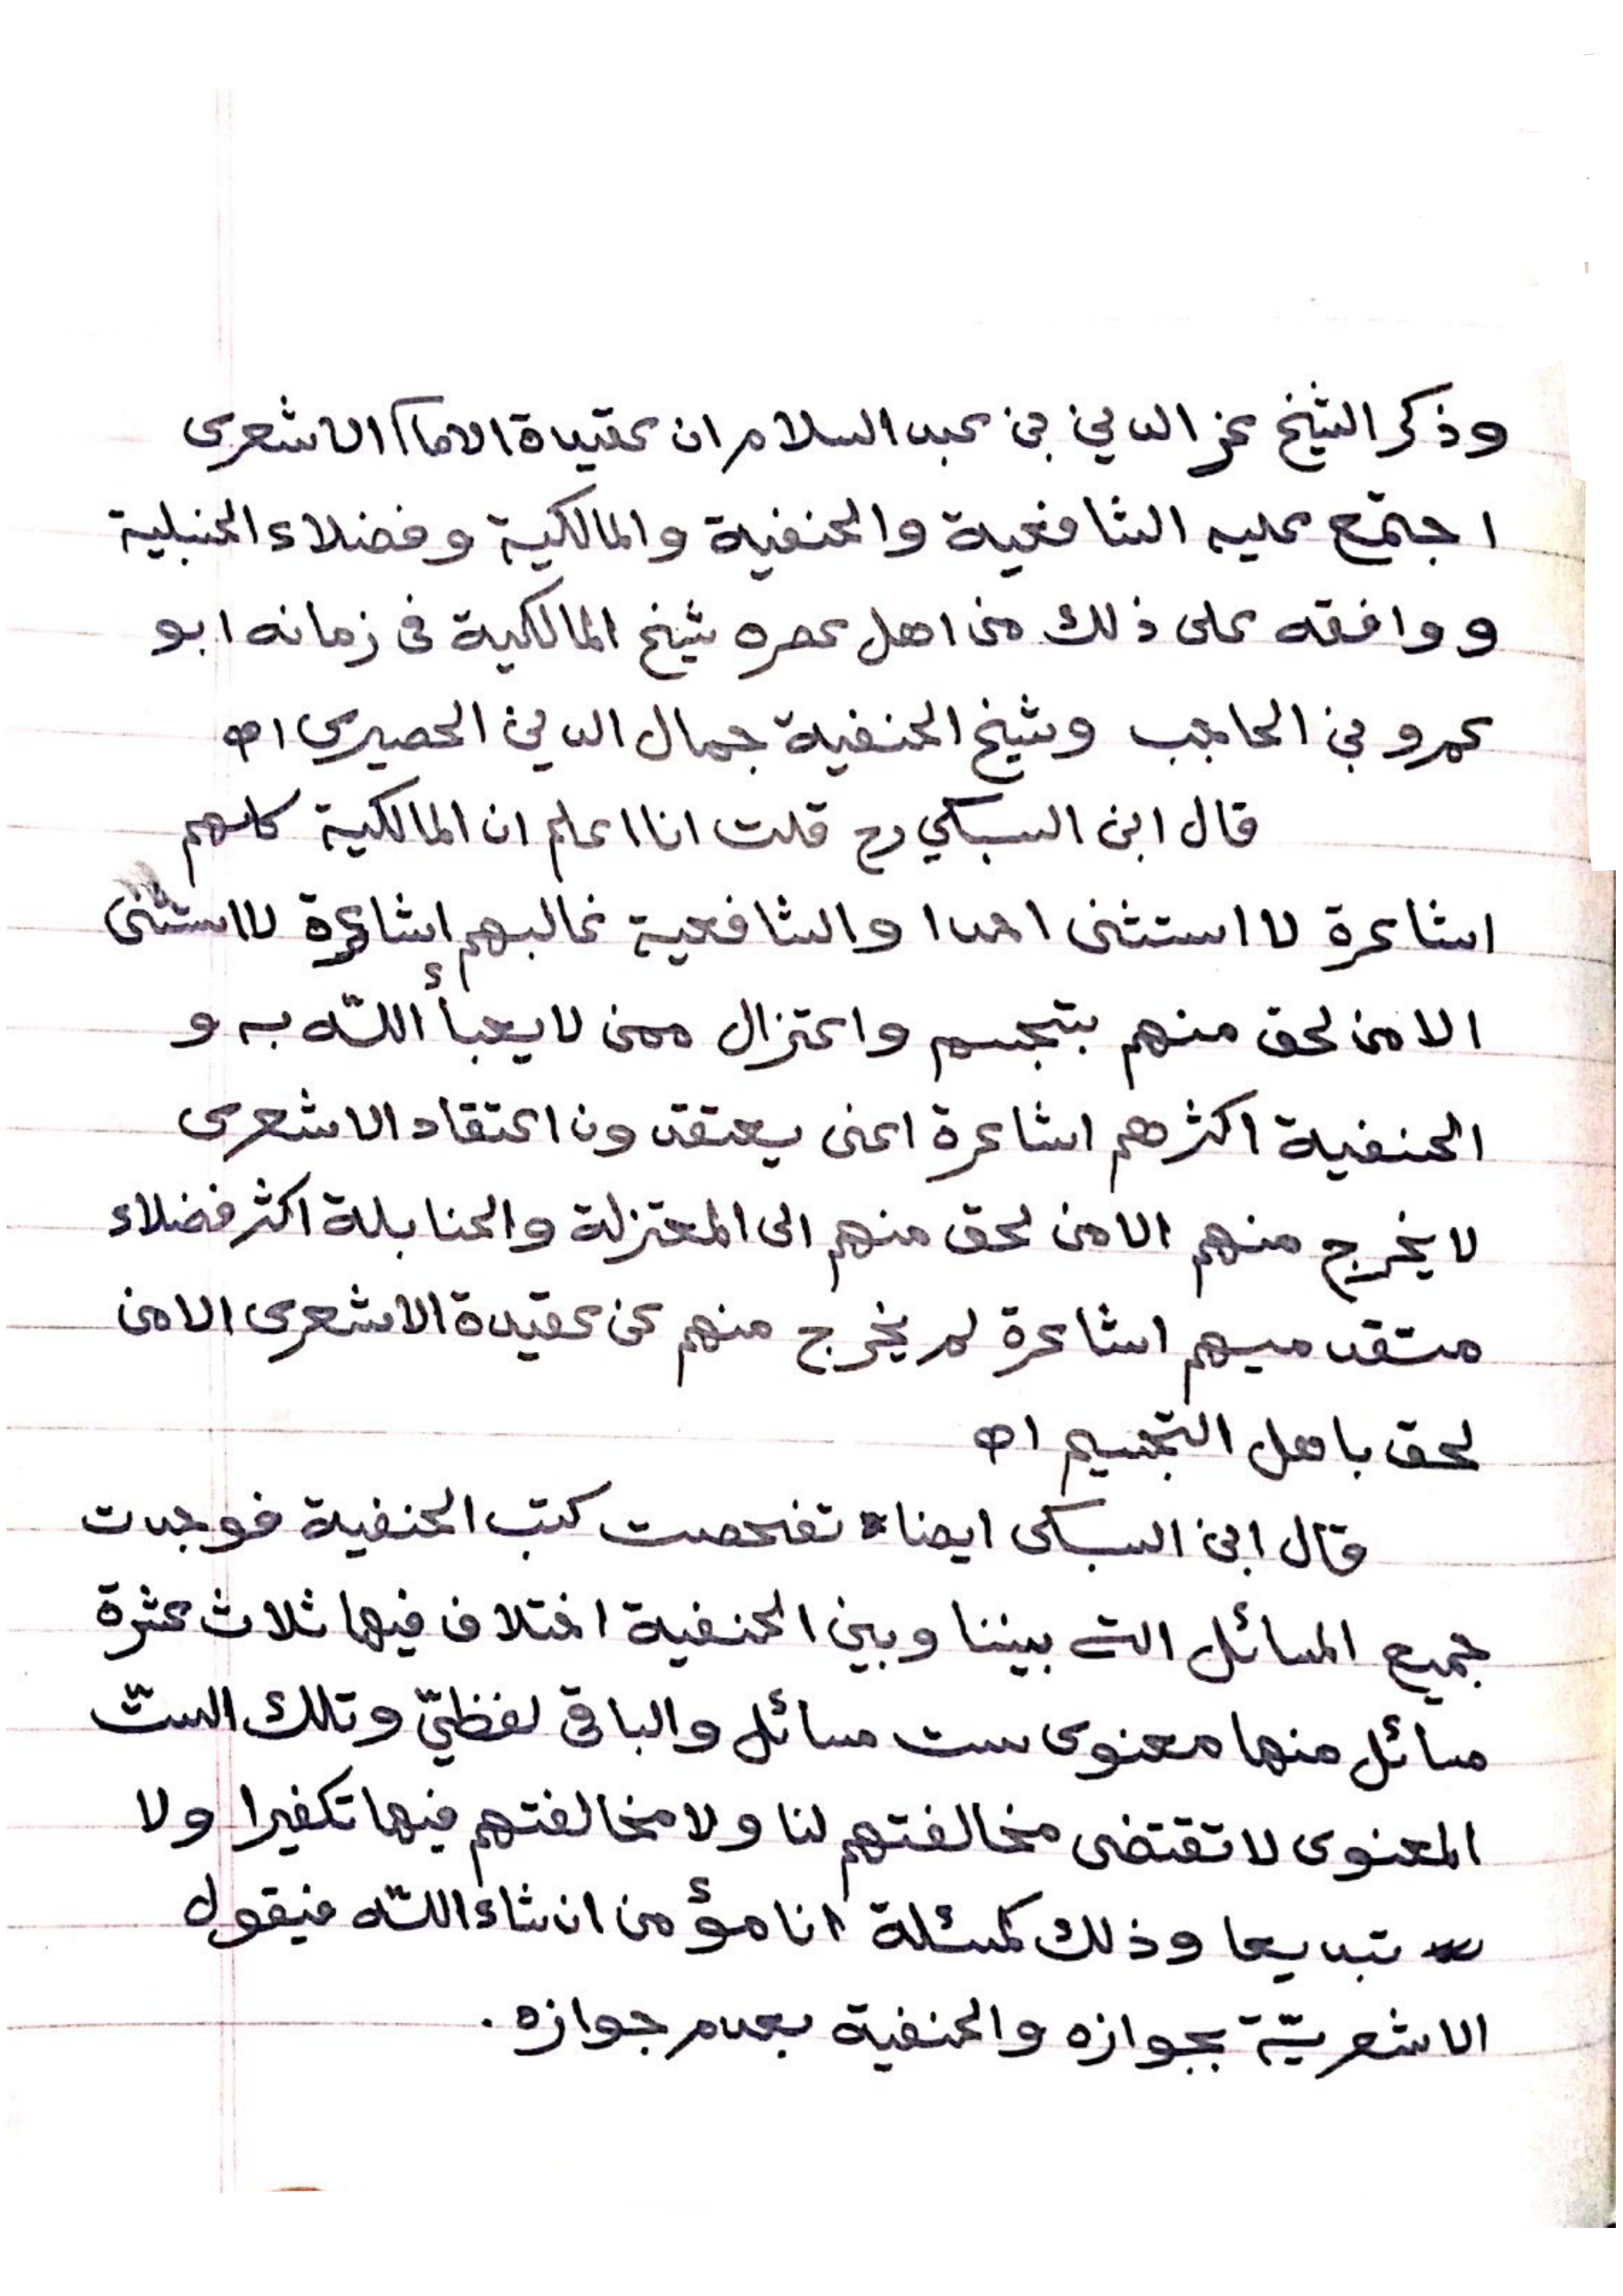 وذكر الشيخ عز الدين بن عبد السلام ان عقيدة الامام الاشعرى
اجتمع عليه الشافعية والحنفية والمالكية وفضلاء الحنبلية
ووافقه على ذلك من اهل عصره شيخ المالكية فى زمانه ابو
عمرو بن الحاجب وشيخ الحنفية جمال الدين الحصيرى اه
قال ابن السبكي رح قلت انا اعلم ان المالكية كلهم
اشاعرة لا استثنى احدا والشافعية غالبهم اشاعرة لا استثنى
الا من لحق منهم بتجسم واعتزال ممن لا يعبأ الله به و
الحنفية اكثرهم اشاعرة اعنى يعتقدون اعتقاد الاشعرى
لا يخرج منهم الا من لحق منهم الى المعتزلة والحنابلة اكثر فضلاء
متقدميهم اشاعرة لم يخرج منهم عن عقيدة الاشعرى الا من
لحق باهل التجسيم اه
قال ابن السبكى ايضا تفحصت كتب الحنفية فوجدت
جميع المسائل التى بيننا وبين الحنفية اختلاف فيها ثلاث عشرة
مسائل منها معنوى ست مسائل والباقى لفظيّ وتلك الستّ
المعنوى لا تقتضى مخالفتهم لنا ولا مخالفتهم فيها تكفيرا ولا
تبديعا وذلك كمسئلة انا مؤمن ان شاء اللّه فيقول
الاشعريّة بجوازه والحنفية بعدم جوازه.